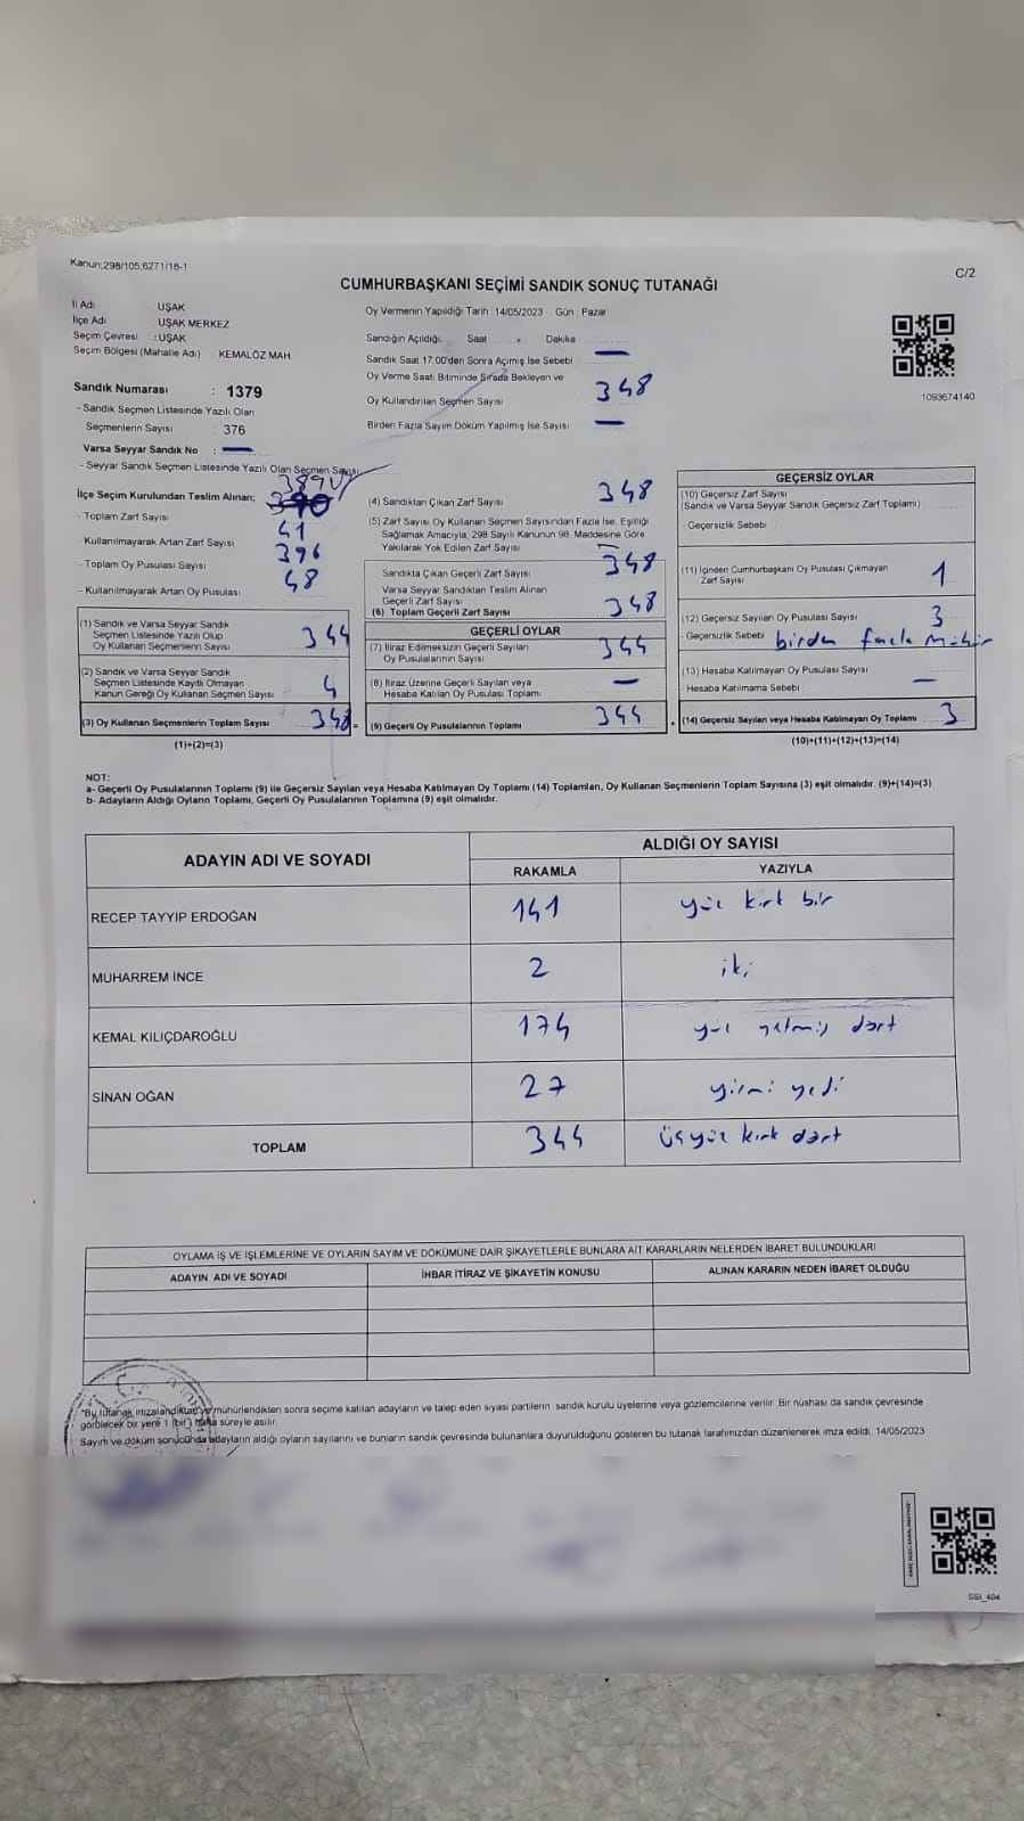 Kanun:298/105,6271/18-1
C/2
CUMHURBAŞKANI SEÇİMİ SANDIK SONUÇ TUTANAĞI
İl Adı UŞAK
İlçe Adı UŞAK MERKEZ
Seçim Çevresi : UŞAK
Seçim Bölgesi (Mahalle Adı) KEMALÖZ MAH.
Sandık Numarası : 1379
- Sandık Seçmen Listesinde Yazılı Olan
Seçmenlerin Sayısı 376
Varsa Seyyar Sandık No : —
- Seyyar Sandık Seçmen Listesinde Yazılı Olan Seçmen Sayısı
Oy Vermenin Yapıldığı Tarih : 14/05/2023 Gün : Pazar
Sandığın Açıldığı Saat Dakika
Sandık Saat 17.00'den Sonra Açılmış İse Sebebi —
Oy Verme Saati Bitiminde Sırada Bekleyen ve
Oy Kullandırılan Seçmen Sayısı 348
Birden Fazla Sayım Döküm Yapılmış İse Sayısı —
1093674140
İlçe Seçim Kurulundan Teslim Alınan; 389
- Toplam Zarf Sayısı
Kullanılmayarak Artan Zarf Sayısı 41
- Toplam Oy Pusulası Sayısı 396
- Kullanılmayarak Artan Oy Pusulası 48
(1) Sandık ve Varsa Seyyar Sandık
Seçmen Listesinde Yazılı Olup
Oy Kullanan Seçmenlerin Sayısı 344
(2) Sandık ve Varsa Seyyar Sandık
Seçmen Listesinde Kayıtlı Olmayan
Kanun Gereği Oy Kullanan Seçmen Sayısı 4
(3) Oy Kullanan Seçmenlerin Toplam Sayısı 348
(1)+(2)=(3)
(4) Sandıktan Çıkan Zarf Sayısı 348
(5) Zarf Sayısı Oy Kullanan Seçmen Sayısından Fazla İse, Eşitliği
Sağlamak Amacıyla, 298 Sayılı Kanunun 98. Maddesine Göre
Yakılarak Yok Edilen Zarf Sayısı —
Sandıkta Çıkan Geçerli Zarf Sayısı 348
Varsa Seyyar Sandıktan Teslim Alınan
Geçerli Zarf Sayısı
(6) Toplam Geçerli Zarf Sayısı 348
GEÇERLİ OYLAR
(7) İtiraz Edilmeksizin Geçerli Sayılan
Oy Pusulalarının Sayısı 344
(8) İtiraz Üzerine Geçerli Sayılan veya
Hesaba Katılan Oy Pusulası Toplamı —
(9) Geçerli Oy Pusulalarının Toplamı 344
GEÇERSİZ OYLAR
(10) Geçersiz Zarf Sayısı
(Sandık ve Varsa Seyyar Sandık Geçersiz Zarf Toplamı)
Geçersizlik Sebebi
(11) İçinden Cumhurbaşkanı Oy Pusulası Çıkmayan
Zarf Sayısı 1
(12) Geçersiz Sayılan Oy Pusulası Sayısı 3
Geçersizlik Sebebi birden fazla mühür
(13) Hesaba Katılmayan Oy Pusulası Sayısı
Hesaba Katılmama Sebebi —
(14) Geçersiz Sayılan veya Hesaba Katılmayan Oy Toplamı 3
(10)+(11)+(12)+(13)=(14)
NOT:
a- Geçerli Oy Pusulalarının Toplamı (9) ile Geçersiz Sayılan veya Hesaba Katılmayan Oy Toplamı (14) Toplamları, Oy Kullanan Seçmenlerin Toplam Sayısına (3) eşit olmalıdır. (9)+(14)=(3)
b- Adayların Aldığı Oyların Toplamı, Geçerli Oy Pusulalarının Toplamına (9) eşit olmalıdır.
ADAYIN ADI VE SOYADI ALDIĞI OY SAYISI
RAKAMLA YAZIYLA
RECEP TAYYİP ERDOĞAN 141 yüz kırk bir
MUHARREM İNCE 2 iki
KEMAL KILIÇDAROĞLU 174 yüz yetmiş dört
SİNAN OĞAN 27 yirmi yedi
TOPLAM 344 üçyüz kırk dört
OYLAMA İŞ VE İŞLEMLERİNE VE OYLARIN SAYIM VE DÖKÜMÜNE DAİR ŞİKAYETLERLE BUNLARA AİT KARARLARIN NELERDEN İBARET BULUNDUKLARI
ADAYIN ADI VE SOYADI İHBAR İTİRAZ VE ŞİKAYETİN KONUSU ALINAN KARARIN NEDEN İBARET OLDUĞU
"Bu tutanak imzalandıktan ve mühürlendikten sonra seçime katılan adayların ve talep eden siyasi partilerin sandık kurulu üyelerine veya gözlemcilerine verilir. Bir nüshası da sandık çevresinde
görülecek bir yere 1 (bir) hafta süreyle asılır.
Sayım ve döküm sonucunda adayların aldığı oyların sayılarını ve bunların sandık çevresinde bulunanlara duyurulduğunu gösteren bu tutanak tarafımızdan düzenlenerek imza edildi. 14/05/2023